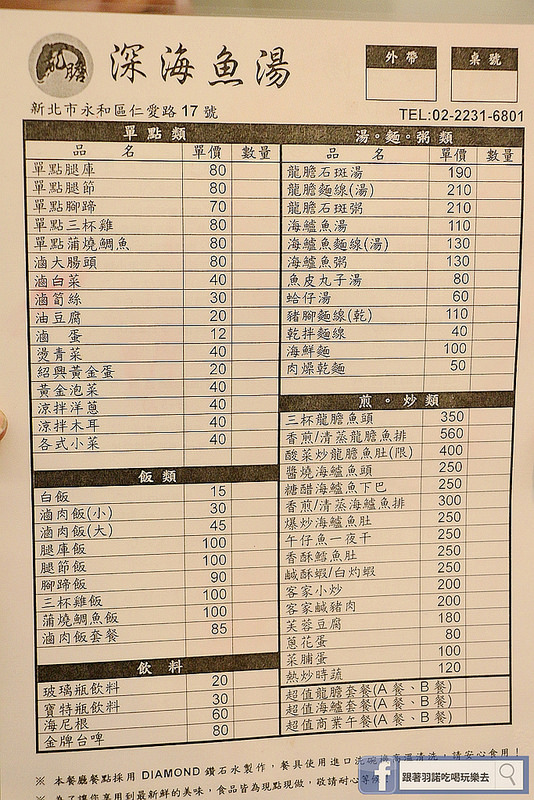 龍膽 深海魚湯
外帶 桌號
新北市永和區仁愛路17號 TEL:02-2231-6801
單點類
品名 單價 數量
單點腿庫 80
單點腿節 80
單點腳蹄 70
單點三杯雞 80
單點蒲燒鯛魚 80
滷大腸頭 80
滷白菜 40
滷筍絲 30
油豆腐 20
滷蛋 12
燙青菜 40
紹興黃金蛋 20
黃金泡菜 40
涼拌洋蔥 40
涼拌木耳 40
各式小菜 40
飯類
白飯 15
滷肉飯(小) 30
滷肉飯(大) 45
腿庫飯 100
腿節飯 100
腳蹄飯 90
三杯雞飯 100
蒲燒鯛魚飯 100
滷肉飯套餐 85
飲料
玻璃瓶飲料 20
寶特瓶飲料 30
海尼根 60
金牌台啤 80
湯。麵。粥類
品名 單價 數量
龍膽石斑湯 190
龍膽麵線(湯) 210
龍膽石斑粥 210
海鱸魚湯 110
海鱸魚麵線(湯) 130
海鱸魚粥 130
魚皮丸子湯 80
蛤仔湯 60
豬腳麵線(乾) 110
乾拌麵線 40
海鮮麵 100
肉燥乾麵 50
煎。炒類
三杯龍膽魚頭 350
香煎/清蒸龍膽魚排 560
酸菜炒龍膽魚肚(限) 400
醬燒海鱸魚頭 250
糖醋海鱸魚下巴 250
香煎/清蒸海鱸魚排 300
爆炒海鱸魚肚 250
午仔魚一夜干 250
香酥鱈魚肚 250
鹹酥蝦/白灼蝦 250
客家小炒 200
客家鹹豬肉 200
芙蓉豆腐 180
蔥花蛋 80
菜脯蛋 100
熱炒時蔬 120
超值龍膽套餐(A餐、B餐)
超值海鱸套餐(A餐、B餐)
超值商業午餐(A餐、B餐)
※ 本餐廳餐點採用 DIAMOND 鑽石水製作，餐具使用進口洗碗機高溫清洗，請安心食用！
※ 為了讓您享用到最新鮮的美味，食品皆為現點現做，敬請耐心等候
f 跟著羽諾吃喝玩樂去